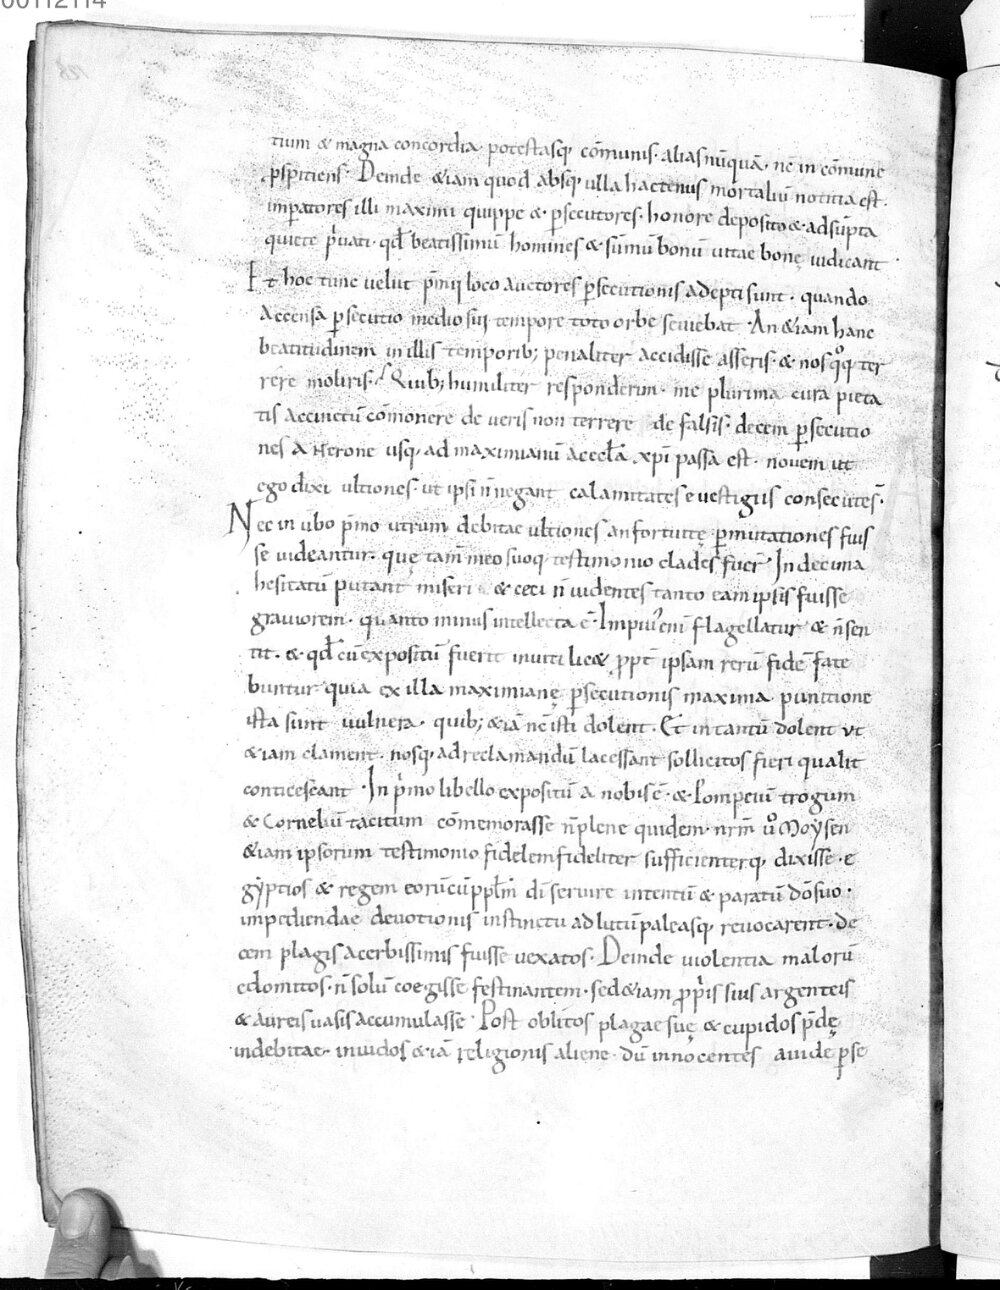 00112114
tium & magna concordia potestasq; cōmunis· alias nūquā· nē in cōmune
pspitiens· Deinde &iam quod absq; ulla hactenus mortaliū notitia est·
imperatores illi maximi quippe &· psecutores· honore deposito &· adsūpta
quiete p̄uati· qđ beatissimū homines & sūmū bonū uitae bonę iudicant
Et hoc tunc uelut p̄mii loco auctores psecutionis adepti sunt· quando
accensa psecutio medio sui tempore toto orbe seuiebat· An &iam hanc
beatitudinem in illis temporib; penaliter accidisse asseris· & nos qͦq; ter
rere moliris· Quib; humiliter responderim· me plurima cura pieta
tis accinctū cōmonere de ueris non terrere de falsis· decem psecutio
nes a Nerone usq; ad maximianū aeccl̄a xp̄i passa est· nouem ut
ego dixi ultiones· ut ipsi n̄ negant calamitates e uestigiis consecutę s̄·
Nec in ubo p̄mo utrum debitae ultiones an fortuitę pmutationes fuis
se uideantur· quę tam̄ meo suoq; testimonio clades fuer̄· In decima
hesitatū putant miseri & ceci n̄ uidentes tanto eam ipsis fuisse
grauiorem· quanto minus intellecta ē· Impius eni flagellatur & n̄ sen
tit· & qđ cū expositū fuerit inuiti lic& ppt̄ ipsam rerū fidē fate
buntur quia ex illa maximianę psecutionis maxima punitione
ista sunt uulnera· quib; &iā nē isti dolent· Et in tantū dolent ut
&iam clament· nosq; ad reclamandū lacessant sollicitos fieri qualit̄
conticescant· In p̄mo libello expositū a nobis ē· & Pompeiū trogum
& Corneliū tacitum cōmemorasse n̄ plene quidem· nr̄m uͦ Moysen
&iam ipsorum testimonio fidelem fideliter sufficienterq; dixisse· e
gyptios & regem eorū cū ppl̄m dī seruire intentū & paratū dō suo·
impediendae deuotionis instinctu ad lutū paleasq; reuocarent· de
cem plagis acerbissimis fuisse uexatos· Deinde uiolentia malorū
edomitos· n̄ solū coegisse festinantem· sed &iam pp̄iis suis argenteis
& aureis uasis accumulasse· Post oblitos plagae suę & cupidos p̄dę
indebitae· inuidos &iā religionis aliene· dū innocentes auide pse